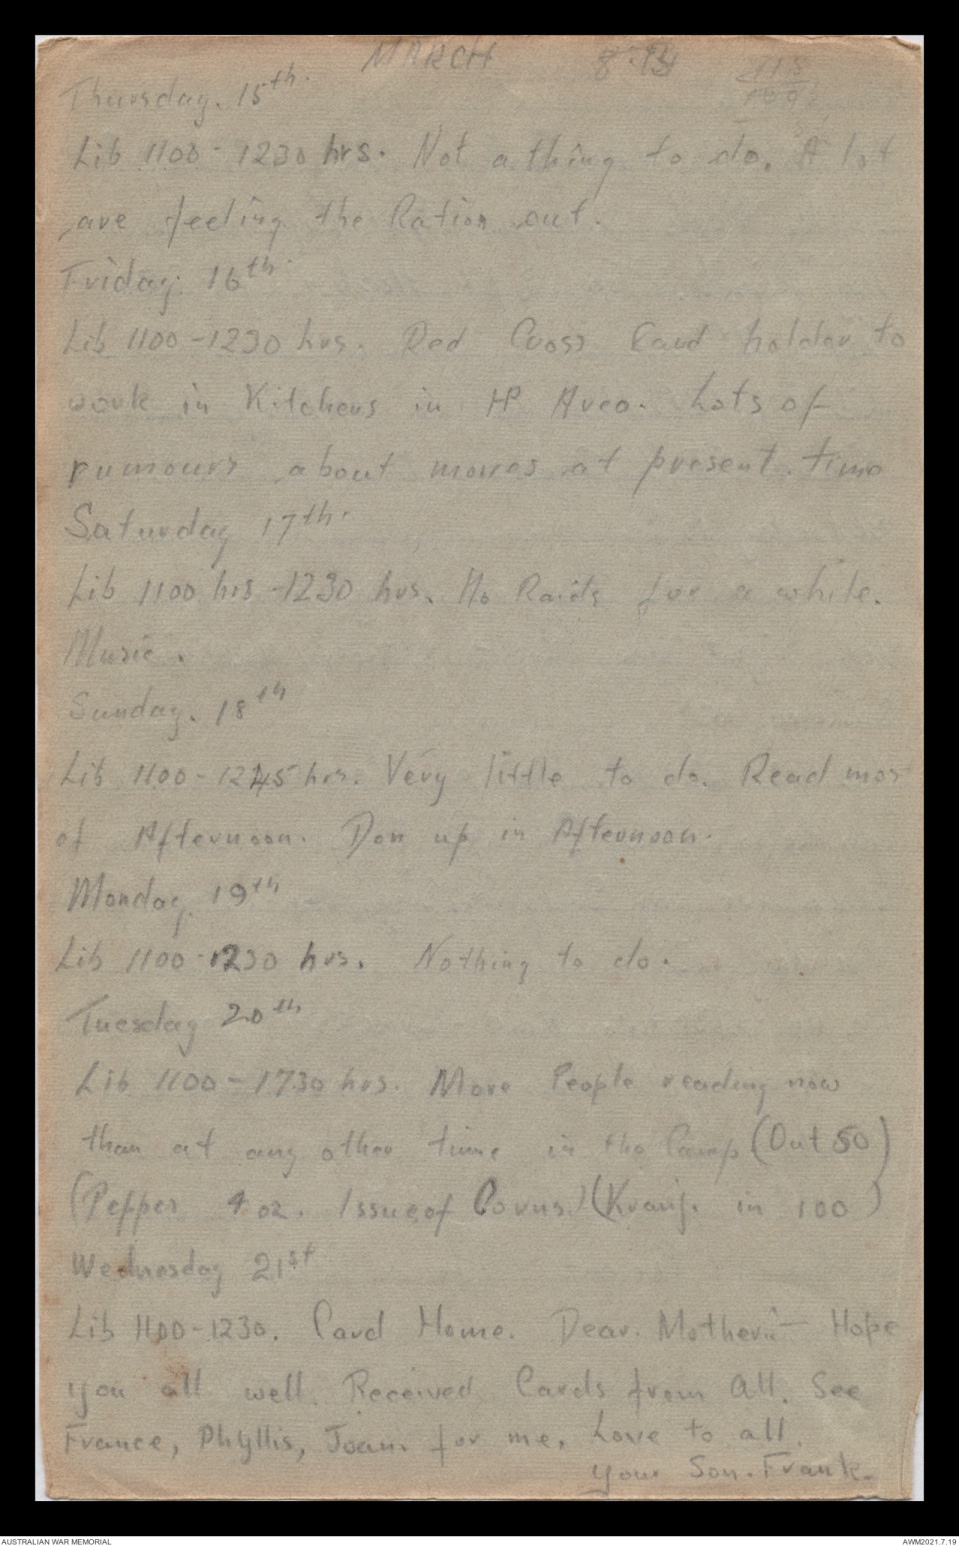 MARCH
Thursday. 15th.
Lib 1100 - 1230 hrs. Not a thing to do. A lot
are feeling the Ration cut.
Friday. 16th.
Lib 1100 - 1230 hrs. Red Cross Card holder to
work in Kitchens in HP Area. Lots of
rumours about moves at present time
Saturday 17th.
Lib 1100 hrs - 1230 hrs. No Raids for a while.
Music.
Sunday. 18th
Lib 1100 - 1245 hrs. Very little to do. Read mos
of Afternoon. Don up in Afternoon.
Monday 19th
Lib 1100 - 1230 hrs. Nothing to do.
Tuesday 20th
Lib 1100 - 1730 hrs. More People reading now
than at any other time in the Camp (Out 50)
(Pepper 4 oz. Issue of Corns.) (Kranji. in 100)
Wednesday 21st
Lib 1100-1230. Card Home. Dear. Mother:- Hope
you all well. Received Cards from All. See
France, Phyllis, Joan. for me. Love to all.
your Son. Frank.
AUSTRALIAN WAR MEMORIAL
AWM2021.7.19